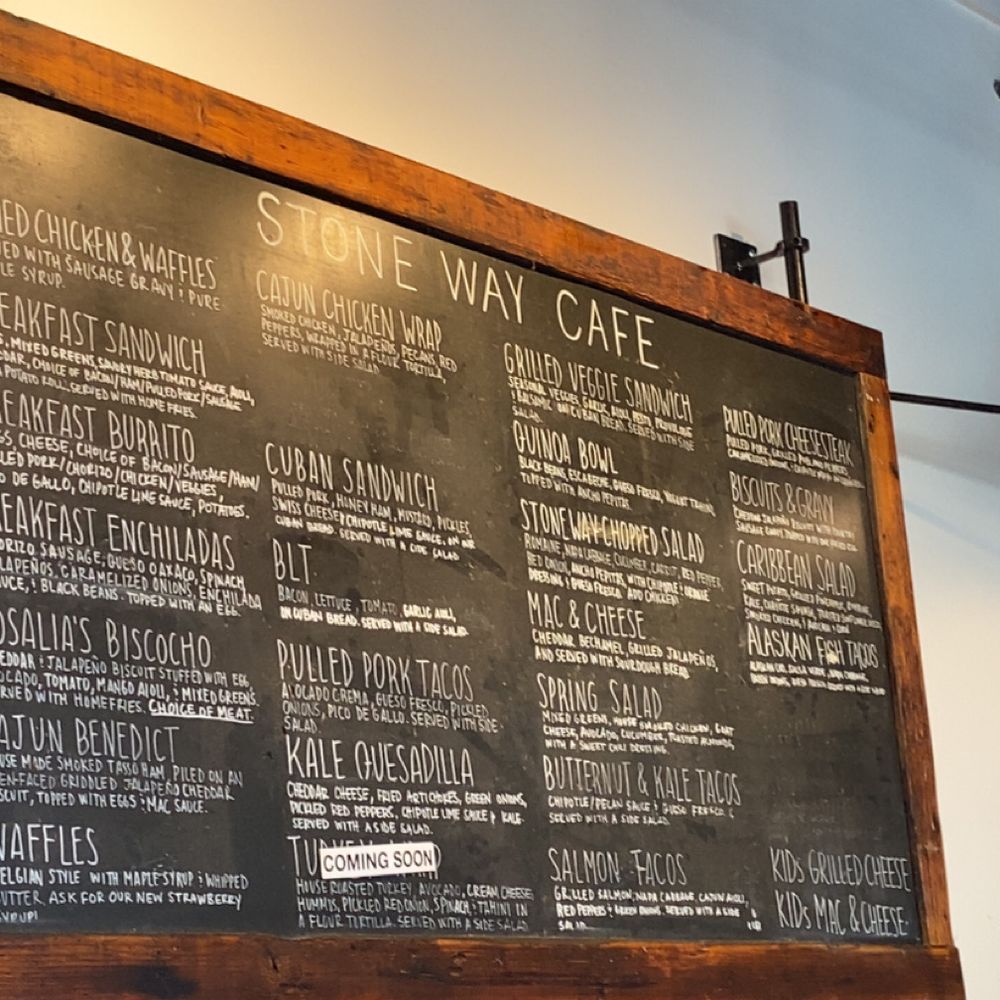 STONE WAY CAFE
ED CHICKEN & WAFFLES
ED WITH SAUSAGE GRAVY & PURE
LE SYRUP.
EAKFAST SANDWICH
S, MIXED GREENS, SAVORY HERB TOMATO SAUCE, AIOLI,
DDAR, CHOICE OF BACON/HAM/PULLED PORK/SAUSAGE
POTATO ROLL. SERVED WITH HOME FRIES.
EAKFAST BURRITO
GS, CHEESE, CHOICE OF BACON/SAUSAGE/HAM/
LLED PORK/CHORIZO/CHICKEN/VEGGIES,
O DE GALLO, CHIPOTLE LIME SAUCE, POTATOES.
EAKFAST ENCHILADAS
ORIZO SAUSAGE, QUESO OAXACO, SPINACH,
LAPEÑOS, CARAMELIZED ONIONS, ENCHILADA
UCE, & BLACK BEANS. TOPPED WITH AN EGG.
OSALIA'S BISCOCHO
EDDAR & JALAPEÑO BISCUIT STUFFED WITH EGG,
OCADO, TOMATO, MANGO AIOLI, & MIXED GREENS.
RVED WITH HOME FRIES. CHOICE OF MEAT.
AJUN BENEDICT
USE MADE SMOKED TASSO HAM, PILED ON AN
EN-FACED GRIDDLED JALAPEÑO CHEDDAR
SCUIT, TOPPED WITH EGGS & MAC SAUCE.
WAFFLES
ELGIAN STYLE WITH MAPLE SYRUP & WHIPPED
UTTER. ASK FOR OUR NEW STRAWBERRY
SYRUP!
CAJUN CHICKEN WRAP
SMOKED CHICKEN, JALAPEÑOS, PECANS, RED
PEPPERS, WRAPPED IN A FLOUR TORTILLA,
SERVED WITH SIDE SALAD
CUBAN SANDWICH
PULLED PORK, HONEY HAM, MUSTARD, PICKLES
SWISS CHEESE & CHIPOTLE LIME SAUCE, ON OUR
CUBAN BREAD. SERVED WITH A SIDE SALAD
BLT
BACON, LETTUCE, TOMATO, GARLIC AIOLI,
ON CUBAN BREAD. SERVED WITH A SIDE SALAD.
PULLED PORK TACOS
AVOCADO CREMA, QUESO FRESCO, PICKLED
ONIONS, PICO DE GALLO. SERVED WITH SIDE
SALAD.
KALE QUESADILLA
CHEDDAR CHEESE, FRIED ARTICHOKES, GREEN ONIONS,
PICKLED RED PEPPERS, CHIPOTLE LIME SAUCE & KALE.
SERVED WITH A SIDE SALAD.
COMING SOON
HOUSE ROASTED TURKEY, AVOCADO, CREAM CHEESE
HUMMUS, PICKLED RED ONION, SPINACH & TAHINI IN
A FLOUR TORTILLA. SERVED WITH A SIDE SALAD
GRILLED VEGGIE SANDWICH
SEASONAL VEGGIES, GARLIC AIOLI, PESTO, PROVOLONE
& BALSAMIC ON CUBAN BREAD. SERVED WITH SIDE
SALAD.
QUINOA BOWL
BLACK BEANS, ESCABECHE, QUESO FRESCO, TAHINI,
TOPPED WITH ANCHO PEPITAS.
STONE WAY CHOPPED SALAD
ROMAINE, NAPA CABBAGE, CUCUMBER, CARROT, RED PEPPER,
RED ONION, ANCHO PEPITAS, WITH CHIPOTLE & ORANGE
DRESSING & QUESO FRESCO. ADD CHICKEN
MAC & CHEESE
CHEDDAR BECHAMEL, GRILLED JALAPEÑOS,
AND SERVED WITH SOURDOUGH BREAD.
SPRING SALAD
MIXED GREENS, HOUSE SMOKED CHICKEN, GOAT
CHEESE, AVOCADO, CUCUMBER, TOASTED ALMONDS,
WITH A SWEET CHILI DRESSING.
BUTTERNUT & KALE TACOS
CHIPOTLE/PECAN SAUCE & QUESO FRESCO
SERVED WITH A SIDE SALAD.
SALMON TACOS
GRILLED SALMON, NAPA CABBAGE, CAJUN AIOLI,
RED PEPPERS & GREEN ONIONS. SERVED WITH A SIDE
SALAD.
PULLED PORK CHEESESTEAK
PULLED PORK, GRILLED
BISCUITS & GRAVY
CHEDDAR JALAPEÑO BISCUIT WITH
SAUSAGE GRAVY TOPPED WITH
CARIBBEAN SALAD
SWEET POTATO, GRILLED PINEAPPLE,
SMOKED CHICKEN,
ALASKAN FISH TACOS
KIDS GRILLED CHEESE
KIDS MAC & CHEESE